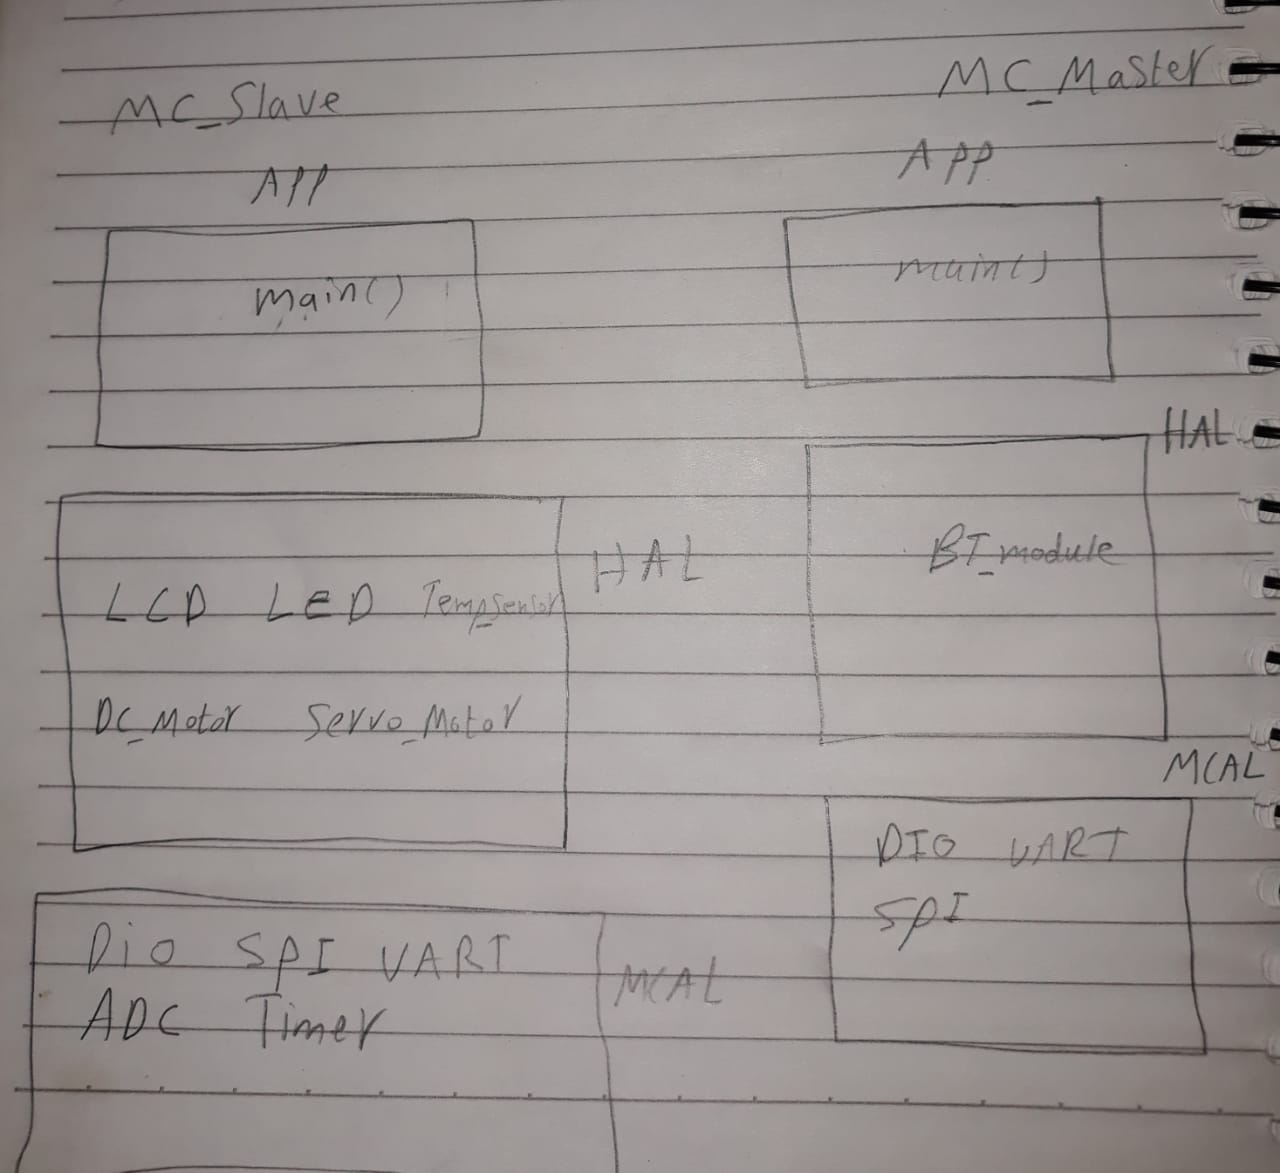 MC_Slave
APP
main()
HAL
LCD LED Temp_Sensor
DC_Motor Servo_Motor
MCAL
DiO SPI UART
ADC Timer
MC_Master
APP
main()
HAL
BT_module
MCAL
DIO UART
SPI